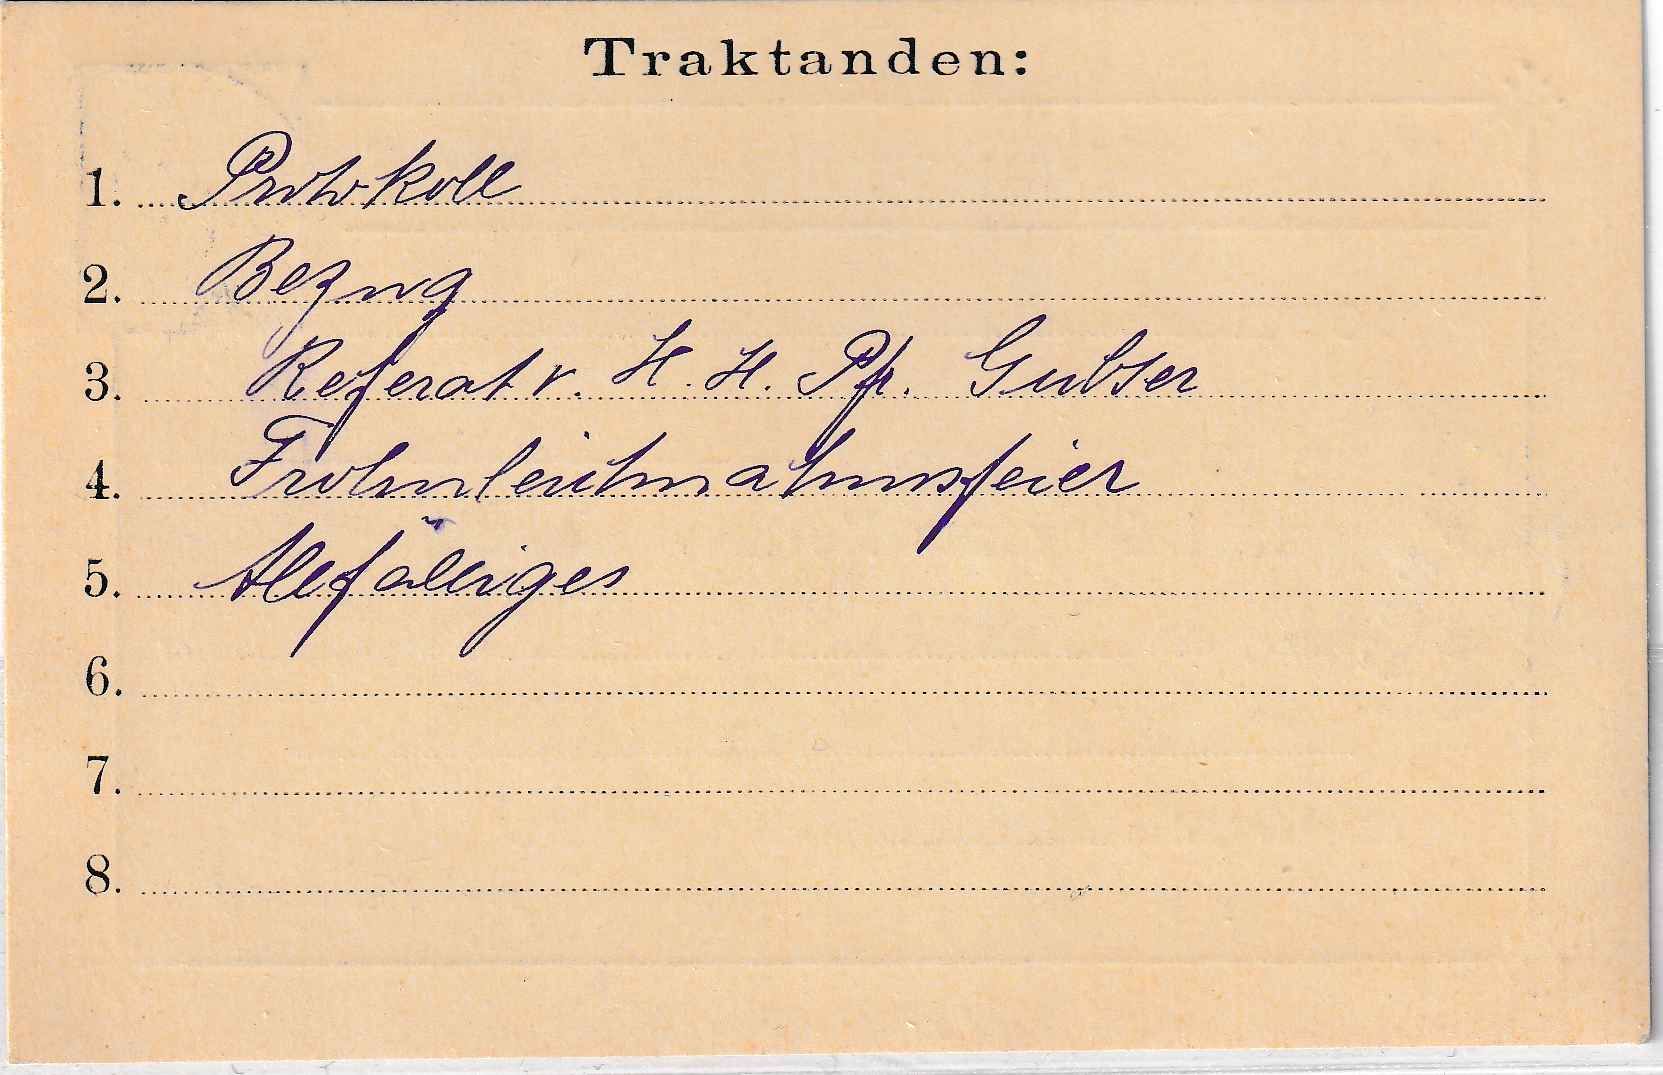 Traktanden:
1. Protokoll
2. Bezug
3. Referat v. H. H. Pfr. Gubser
4. Frohnleichnahmsfeier
5. Allfälliges
6.
7.
8.